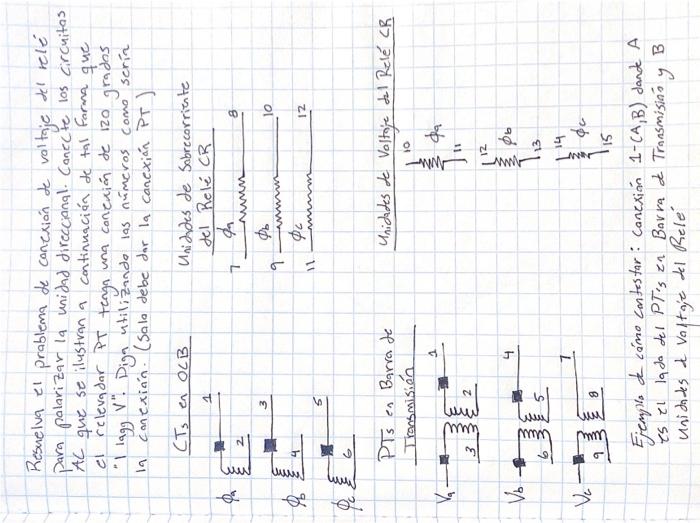 Resuelva el problema de conexión de voltaje del relé
para polarizar la unidad direccional. Conecte los circuitos
AC que se ilustran a continuación de tal forma que
el relevador PT tenga una conexión de 120 grados
"I lagg V". Diga utilizando los números como sería
la conexión. (Solo debe dar la conexión PT)
CTs en OCB
Φa
1
2
Φb
3
4
Φc
5
6
Unidades de Sobrecorriente
del Relé CR
7 Φa 8
9 Φb 10
11 Φc 12
PTs en Barra de
Transmisión
Va
1
3 2
Vb
4
6 5
Vc
7
9 8
Unidades de Voltaje del Relé CR
10
Φa
11
12
Φb
13
14
Φc
15
Ejemplo de cómo contestar: Conexión 1-(A,B) donde A
es el lado del PT's en Barra de Transmisión y B
Unidades de Voltaje del Relé